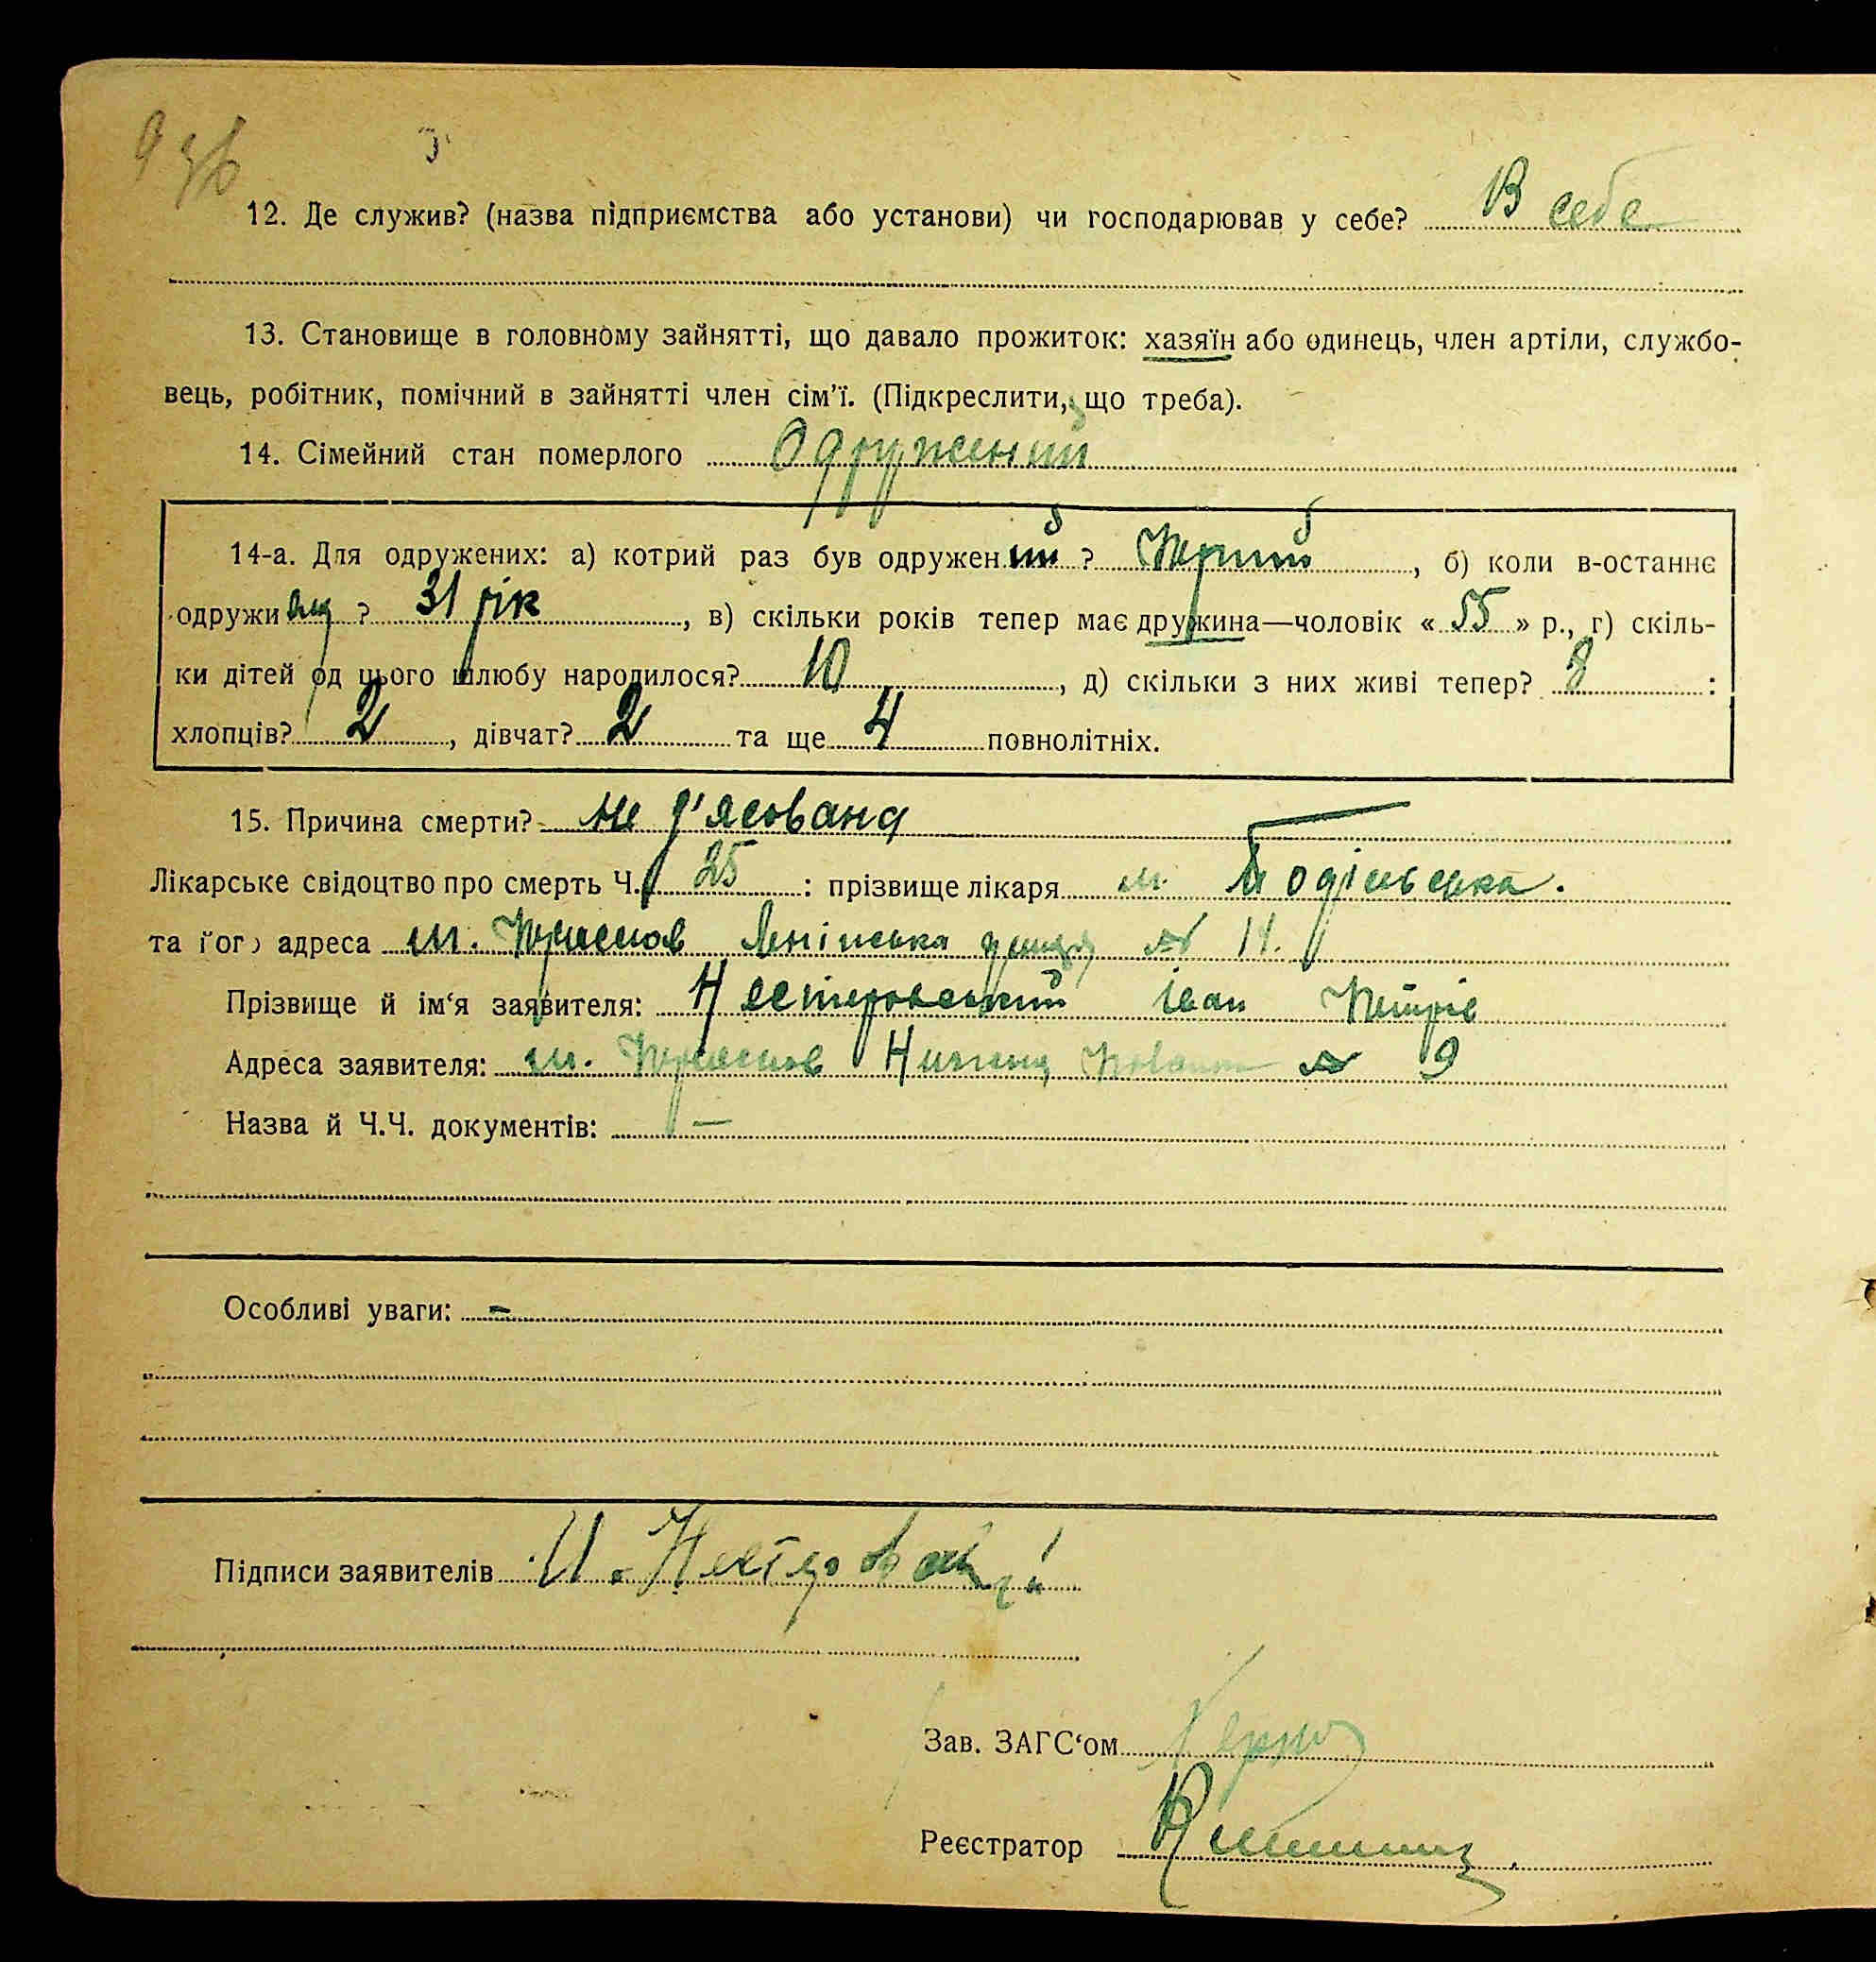 12. Де служив? (назва підприємства або установи) чи господарював у себе? В себе
13. Становище в головному зайнятті, що давало прожиток: хазяїн або одинець, член артіли, службо-
вець, робітник, помічний в зайнятті член сім'ї. (Підкреслити, що треба).
14. Сімейний стан померлого Одружений
14-а. Для одружених: а) котрий раз був одружений? Перший, б) коли в-останнє
одружився? 31 рік, в) скільки років тепер має дружина—чоловік «55» р., г) скіль-
ки дітей од цього шлюбу народилося? 10, д) скільки з них живі тепер? 8:
хлопців? 2, дівчат? 2 та ще 4 повнолітніх.
15. Причина смерти? не з'ясована
Лікарське свідоцтво про смерть Ч. 25: прізвище лікаря
та його адреса м. Ленінська вулиця № 14.
Прізвище й ім'я заявителя: Нестеровський Іван Петрів
Адреса заявителя: м. № 9
Назва й Ч.Ч. документів: —
Особливі уваги: -
Підписи заявителів И. Нестеровский
Зав. ЗАГС'ом
Реєстратор